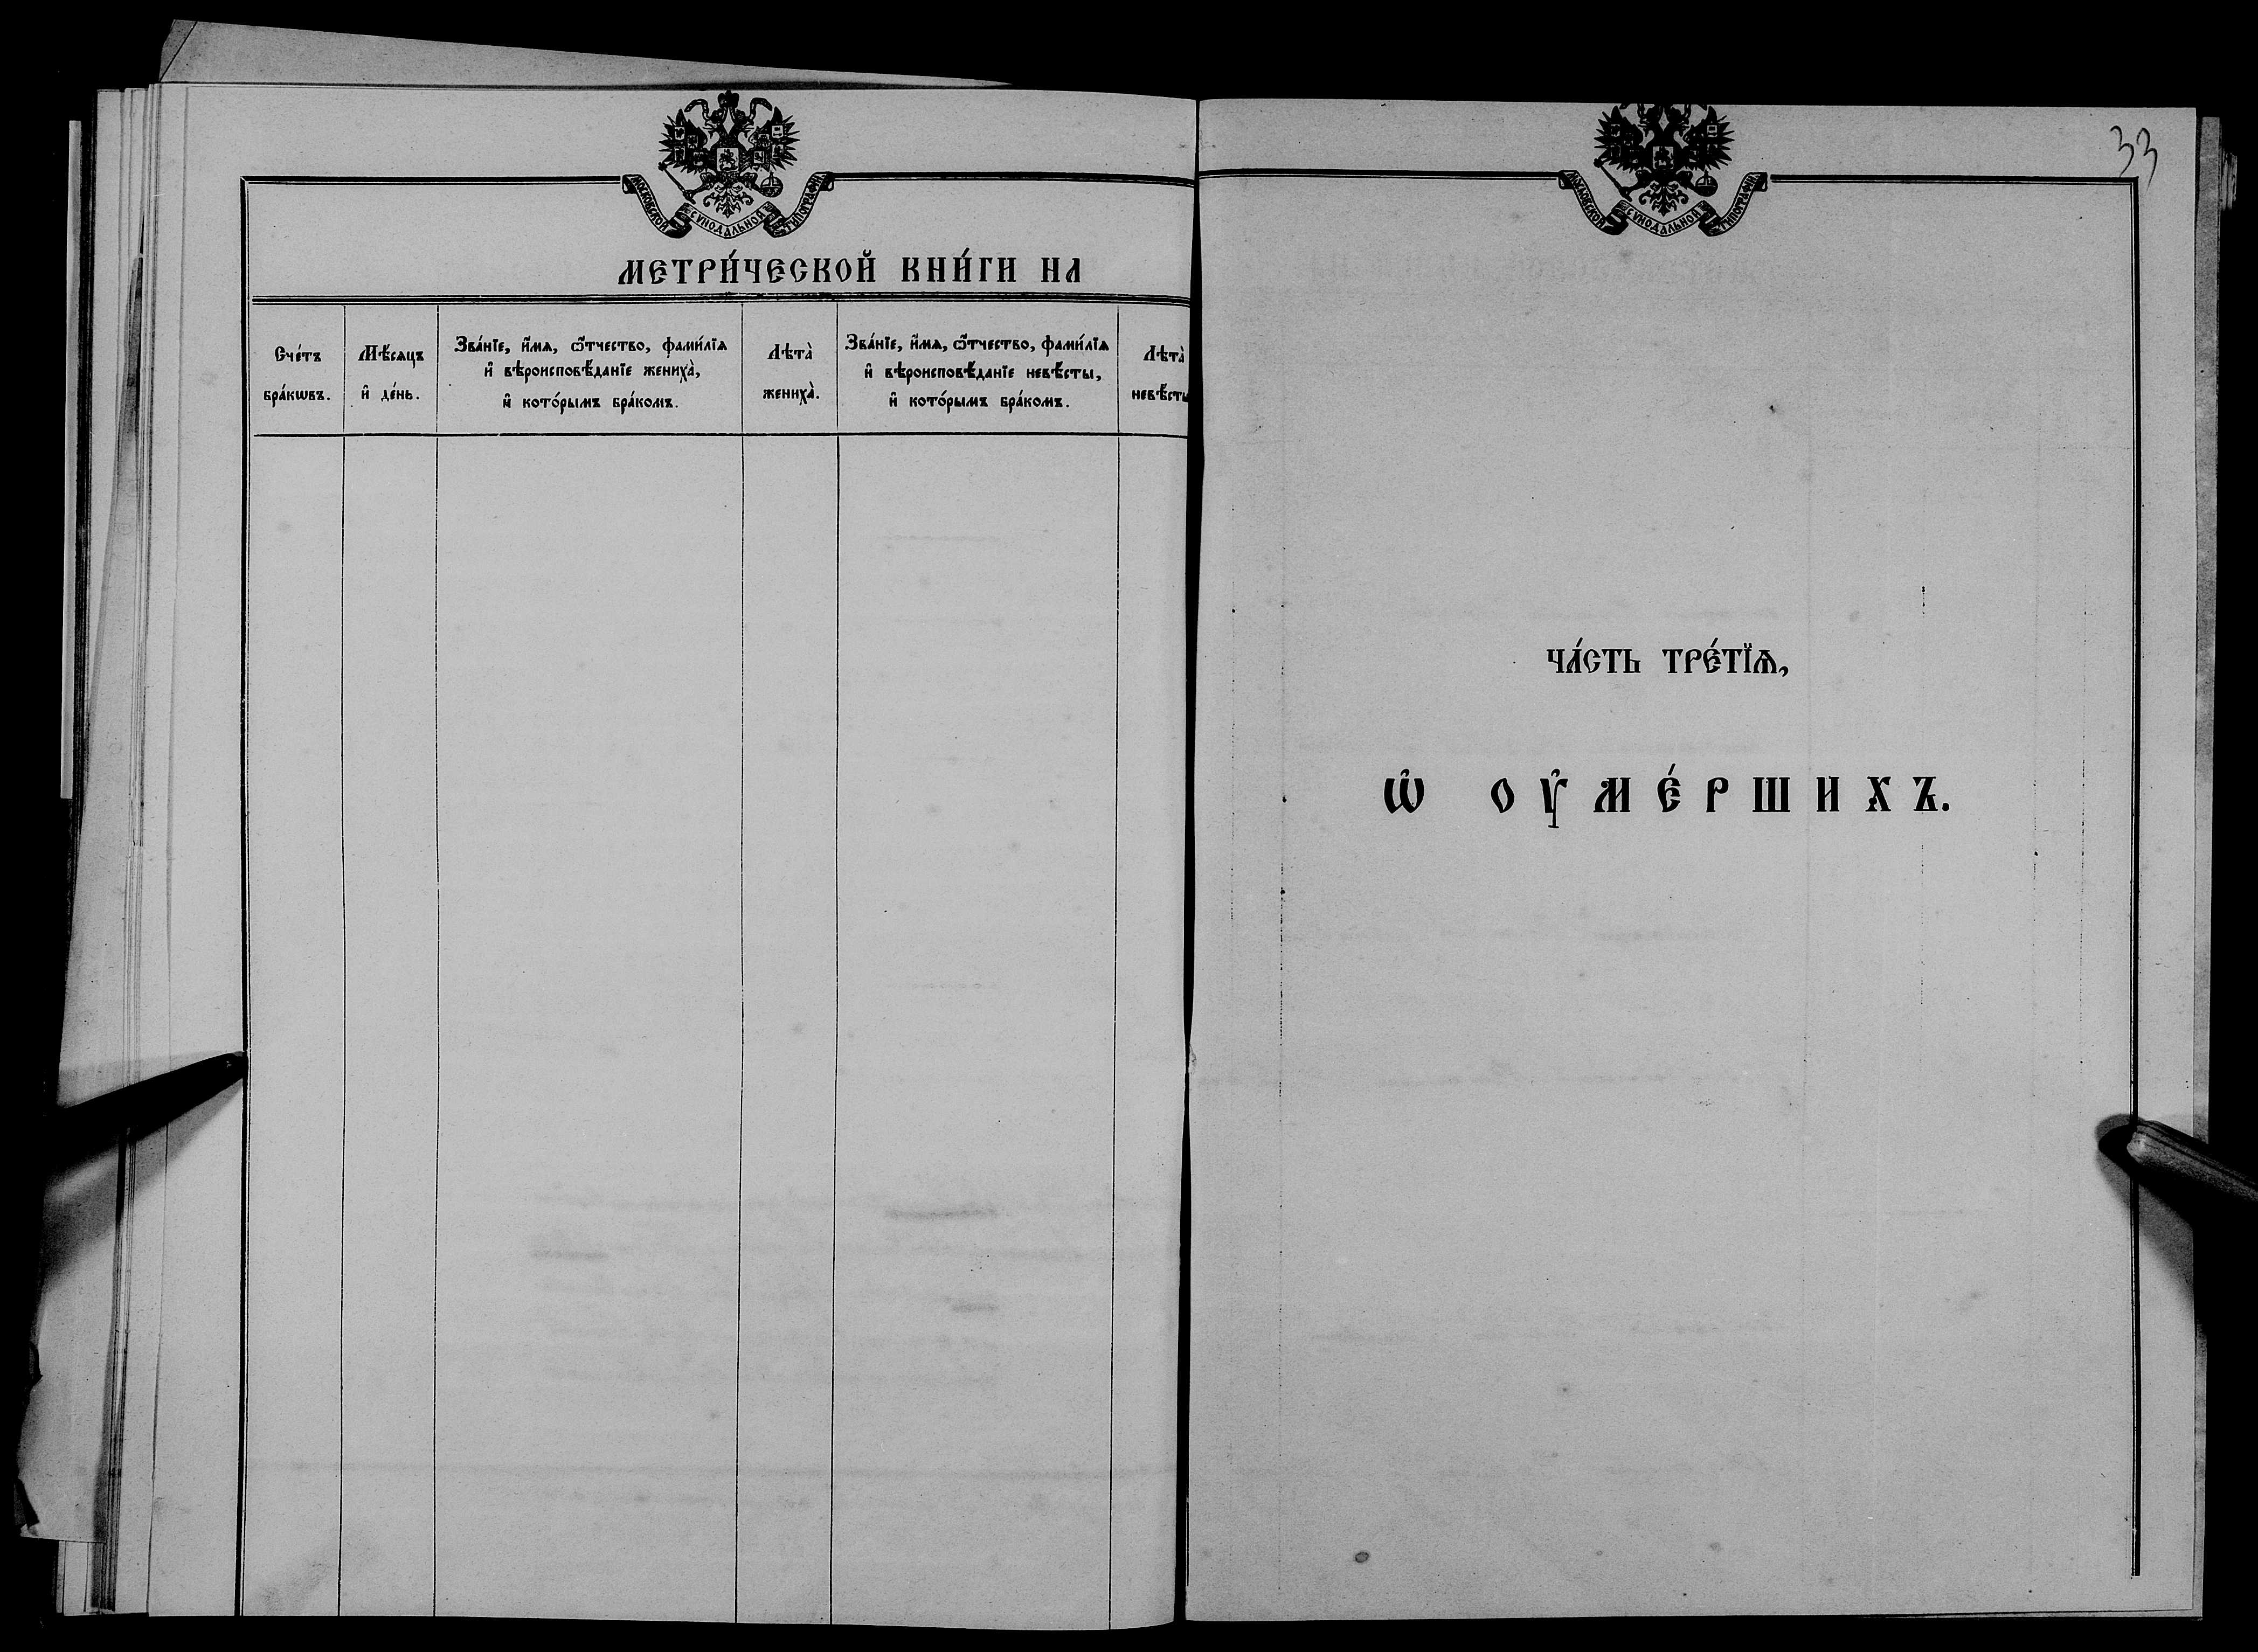 МОСКОВСКОЙ СѴНОДАЛЬНОЙ ТИПОГРАФІИ
МЕТРИ́ЧЕСКОЙ КНИ́ГИ НА
Сче́тъ
бра́кѡвъ.
Мѣ́сяцъ
и҆ де́нь.
Зва́нїе, и҆́мѧ, ѻ҆́тчество, фами́лїѧ
и҆ вѣроисповѣ́данїе жениха̀,
и҆ кото́рымъ бра́комъ.
Лѣта̀
жениха̀.
Зва́нїе, и҆́мѧ, ѻ҆́тчество, фами́лїѧ
и҆ вѣроисповѣ́данїе невѣ́сты,
и҆ кото́рымъ бра́комъ.
Лѣта̀
невѣ́сты
33
МОСКОВСКОЙ СѴНОДАЛЬНОЙ ТИПОГРАФІИ
ЧА́СТЬ ТРЕ́ТЇѦ,
Ѡ҆ ОУ҆МЕ́РШИХЪ.